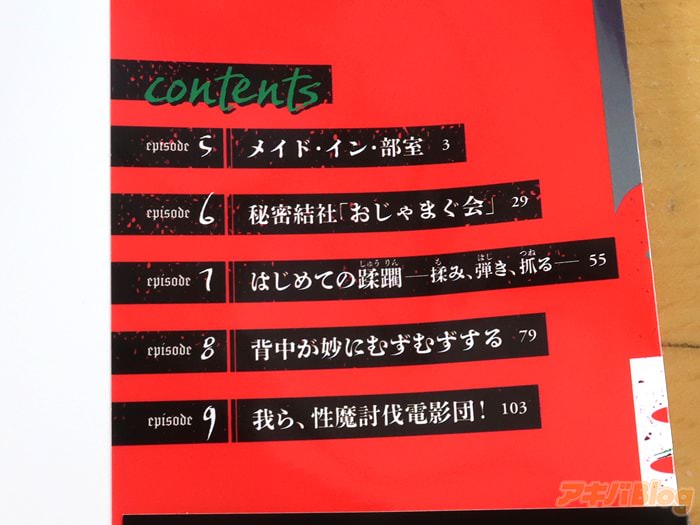 contents
episode 5 メイド・イン・部室 3
episode 6 秘密結社「おじゃまぐ会」 29
episode 7 はじめての蹂躙―揉み、弾き、抓る― 55
じゅうりん る はじ つね
episode 8 背中が妙にむずむずする 79
episode 9 我ら、性魔討伐電影団! 103
アキバBlog